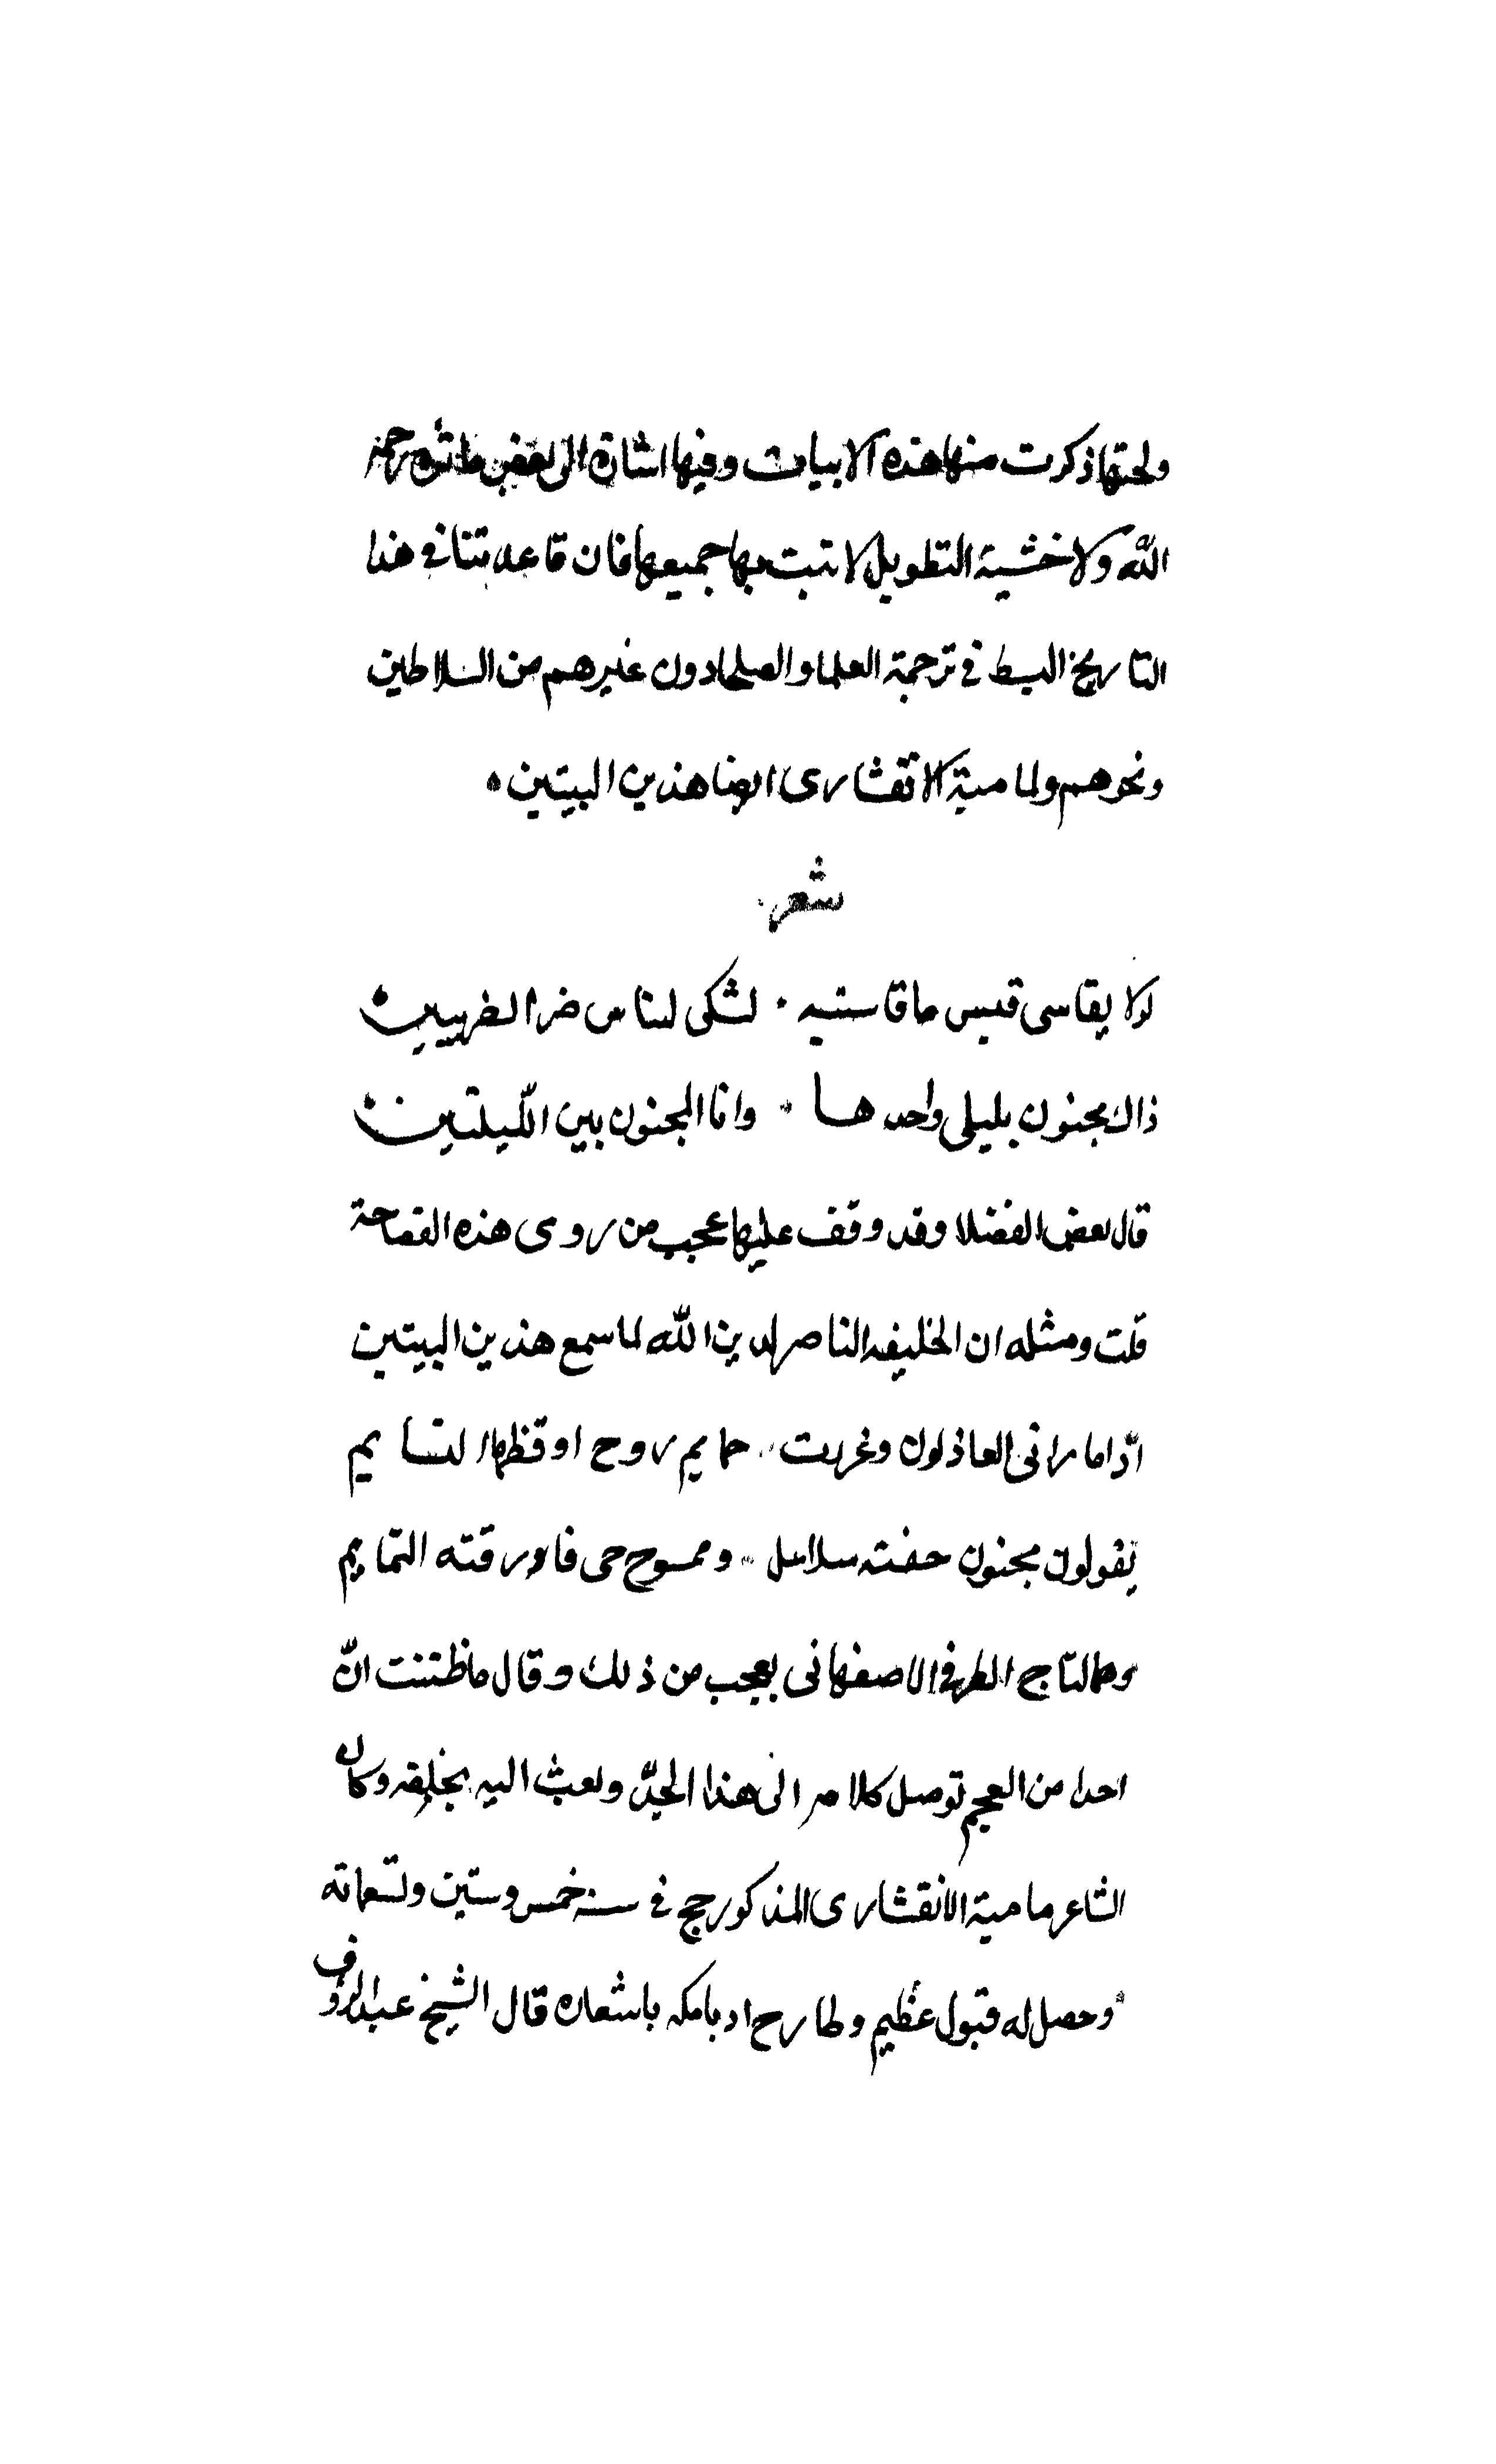 ذكرت منها هذه الابيات وفيها اشارة الى بعض ماثره رحمة
الله ولا خشية التطويل لاتبت بها جميعها فان قاعدتنا في هذا
التاريخ البسط في ترجمة العلما والصلحا دون غيرهم من السلاطين
ونحوهم ولمامية الانقشارى ايضا هذين البيتين
شعر
لو لا يقاسى قيس ما قاسيته لشكى للناس ضر الضربيين
ذاك مجنون بليلى واحدها وانا المجنون بين الليلتين
قال بعض الفضلا وقد وقف عليها عجب من روى هذه الفصاحة
قلت ومثله ان الخليفه الناصر لدين الله لما سمع هذين البيتين
اذا ما رانى العاذلون وغردت حمايم روح اوقظها النسايم
يقولون مجنون حفته سلاسل وممسوح حى فاورقته التمايم
وهما للتاج الاصفهانى يعجب من ذلك وقال ما ظننت ان
احدا من العجم توصل كلامه الى هذا الحد وبعث اليه بخلعه وكان
الشاعر مامية الانقشارى المذكور حج في سنة خمس وستين وتسعمائة
وحصل له قبول عظيم وطارح ادبا مكه باشعاره قال الشيخ عبد الروف